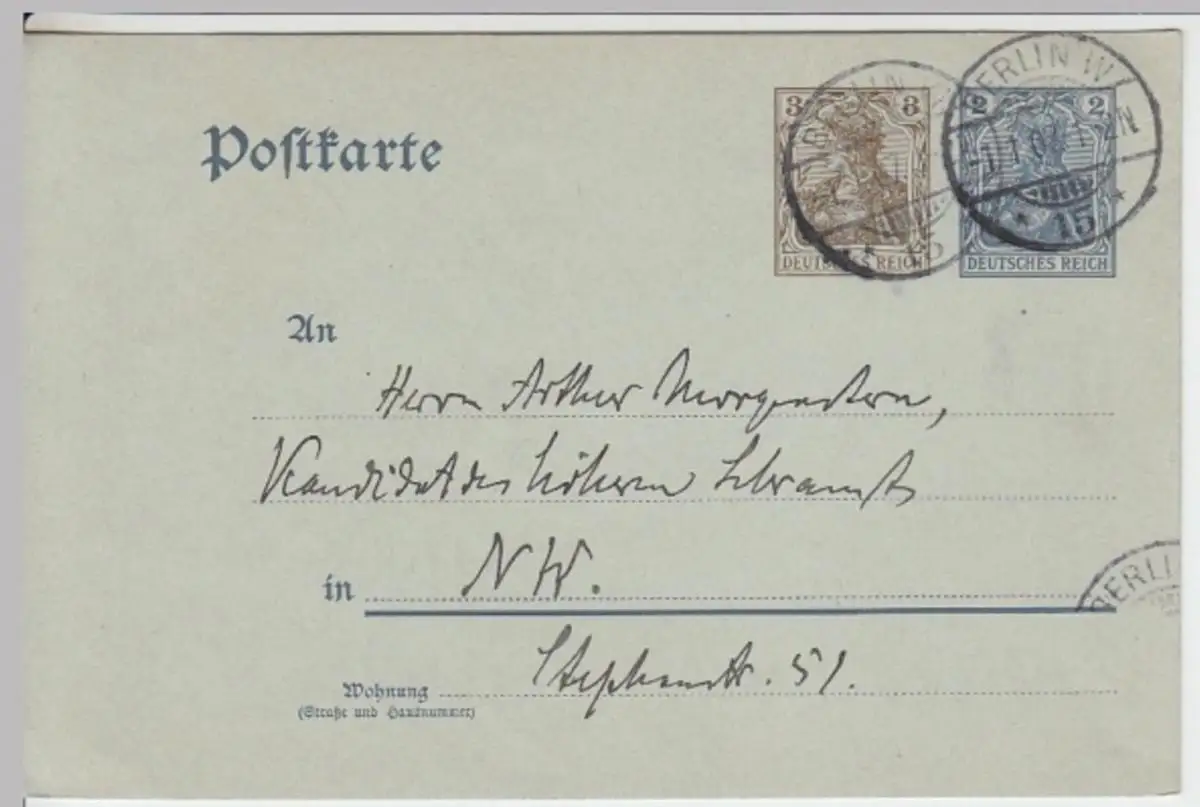 Postkarte
3 3
DEUTSCHES REICH
2 2
DEUTSCHES REICH
BERLIN
15
BERLIN W
1.1.07. 1-2N
* 15 *
An
Herrn Arthur Morgenstern,
Kandidat des höheren Lehramts
in NW.
BERLI
Stephanstr. 51.
Wohnung
(Straße und Hausnummer)